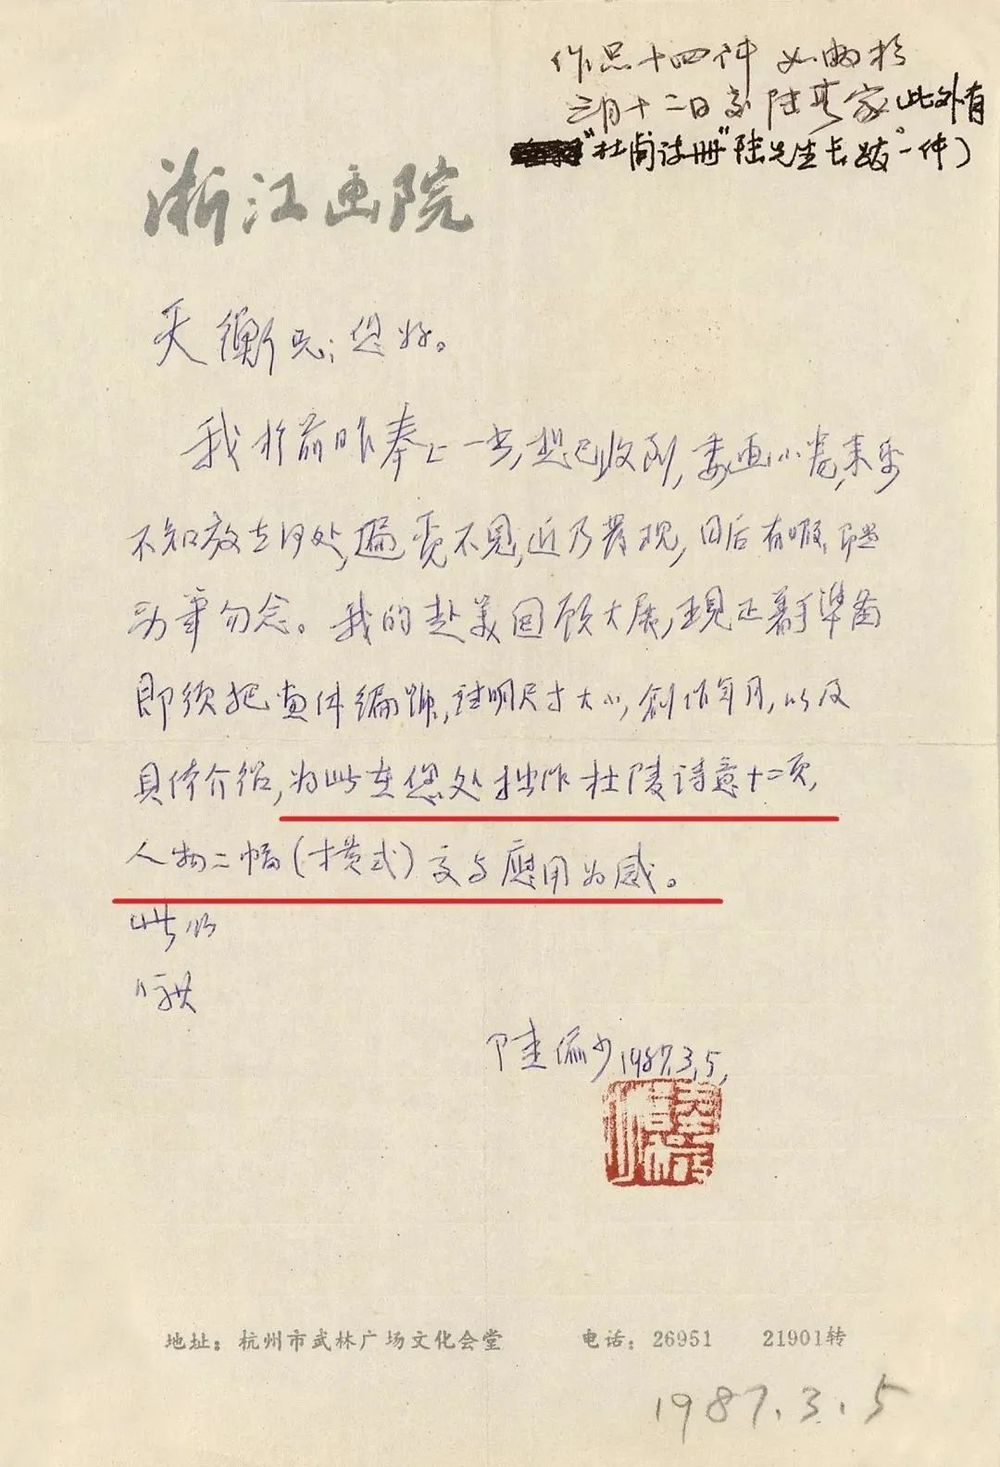 作品十四件 如数于
三月十二日交陆老家(此外有
"杜甫诗册"陆先生长跋"一件)
浙江画院
天衡兄:您好。
我于前昨奉上一书,想已收到,委画小卷,来杭
不知放在何处,遍觅不见,近乃发现,日后有暇,即当
动笔勿念。我的赴美回顾大展,现正着手准备
即须把画件编号,注明尺寸大小,创作年月,以及
具体介绍,为此在您处拙作杜陵诗意十二页,
人物二幅(横式)交与应用为感。
此川
陆俨少1987.3.5,
地址:杭州市武林广场文化会堂 电话:26951 21901转
1987.3.5